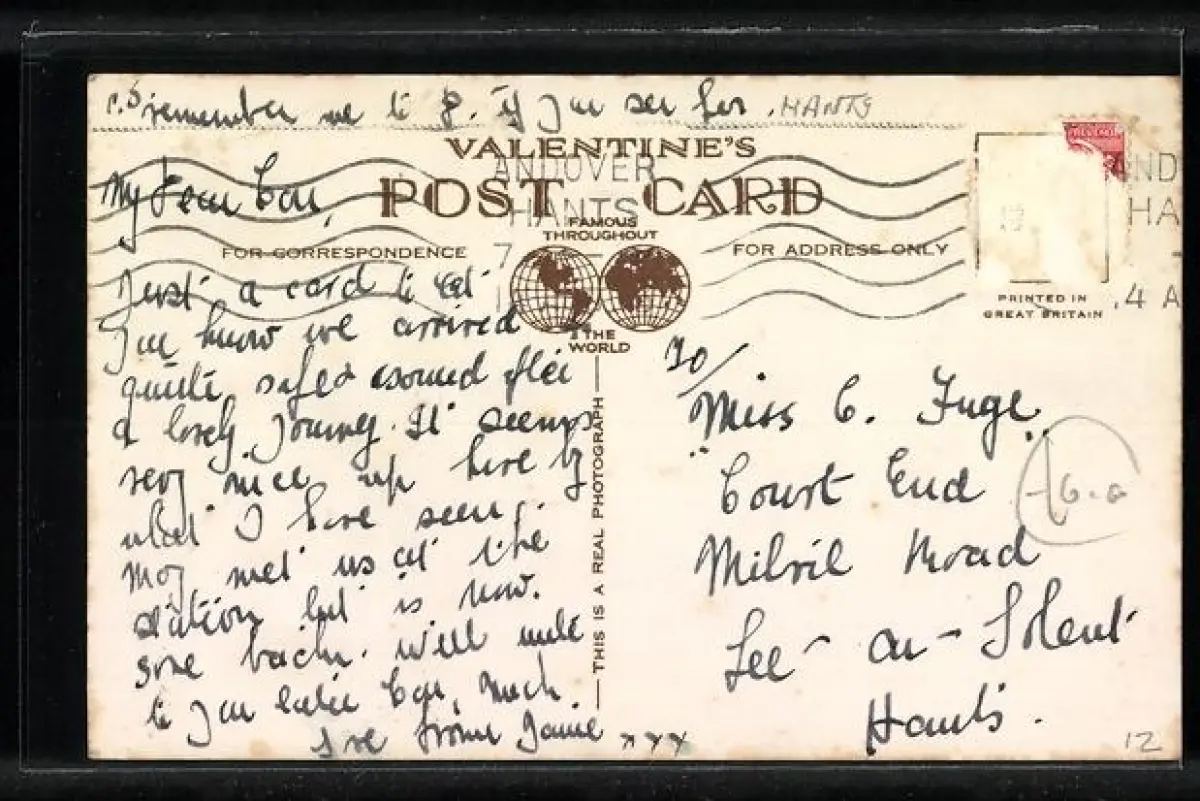 P.S remember me to G. if you see her. HANTS
VALENTINE'S
POST CARD
ANDOVER
HANTS
7
FOR CORRESPONDENCE
FAMOUS
THROUGHOUT
THE
WORLD
FOR ADDRESS ONLY
REVENUE
AND
HA
.4 A
PRINTED IN
GREAT BRITAIN
THIS IS A REAL PHOTOGRAPH
My Dear Con,
Just a card to let
you know we arrived
quite safe & sound after
a lovely journey. It seems
very nice up here by
what I have seen.
Moy met us at the
station but is now.
gone back. Will write
to you later Con, Much
love from Janie xxx
To/
Miss C. Fuge.
"Court End
Milvil Road
Lee-on-Solent
Hants.
12